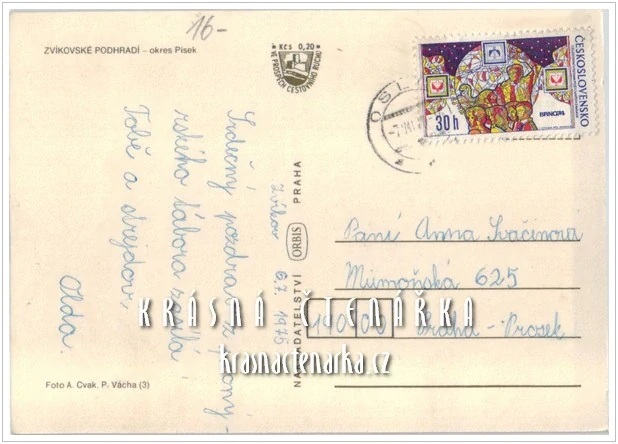 16-
ZVÍKOVSKÉ PODHRADÍ – okres Písek
Kčs 0,20
VE PROSPĚCH CESTOVNÍHO RUCHU
ČESKOSLOVENSKO
BRNO 74
30 h
OSL
Zvíkov 6.7. 1976
Srdečný pozdrav z
rského tábora zasílá
Tobě a strejdovi
Olda.
NAKLADATELSTVÍ ORBIS PRAHA
Paní Anna Svačinova
Mimoňská 625
190 00 Praha - Prosek
KRÁSNÁ ČTENÁŘKA
krasnactenarka.cz
Foto A. Cvak, P. Vácha (3)